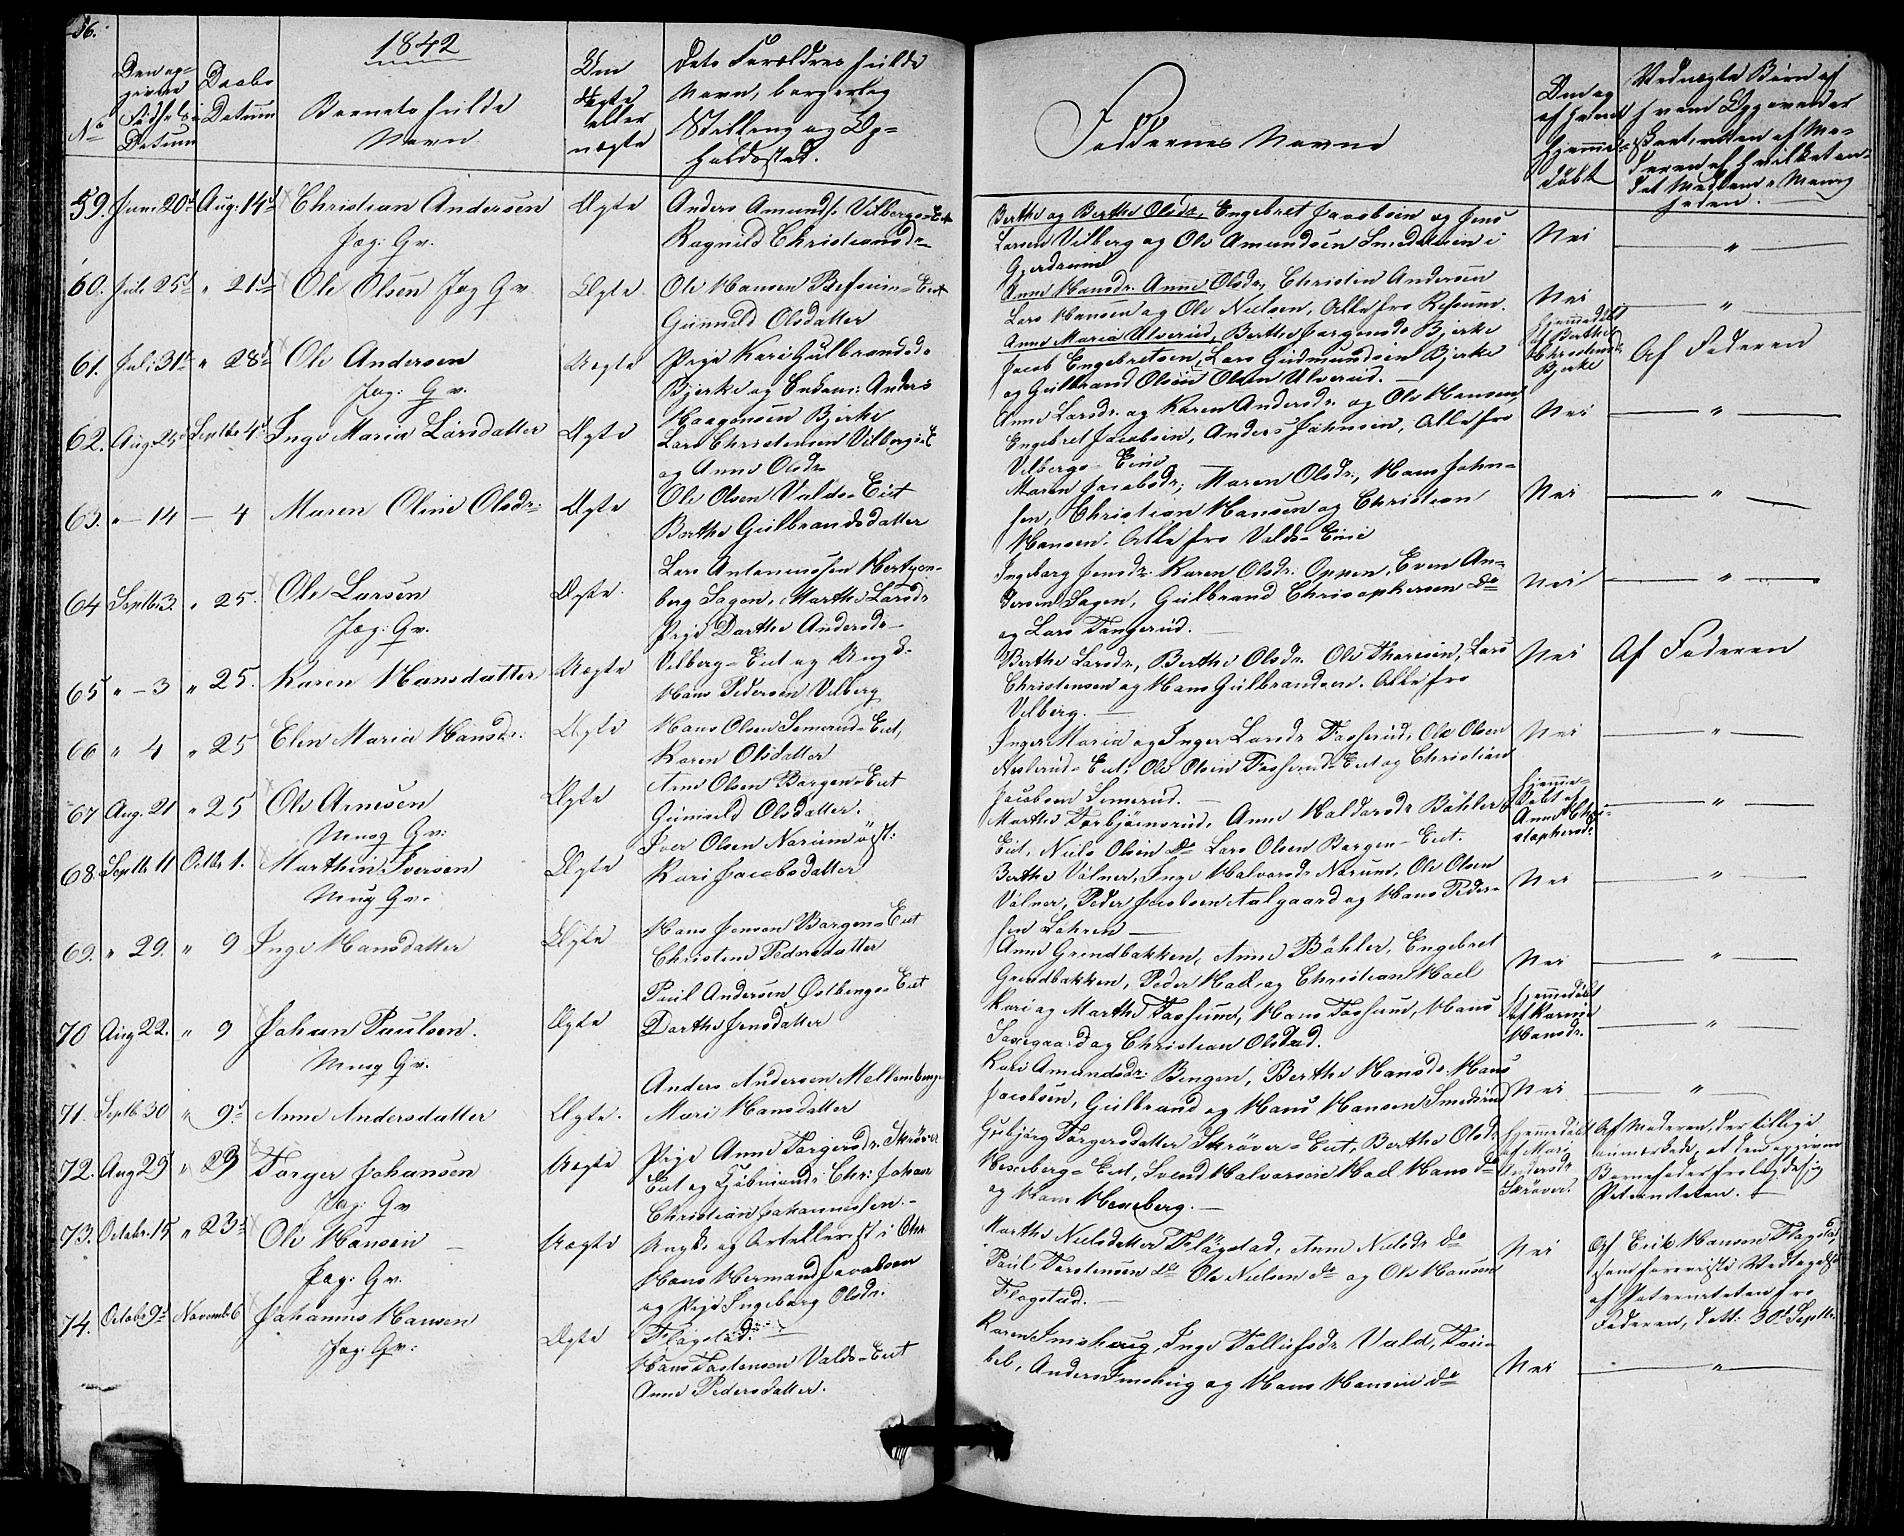 56.
1842
No
Den op-
givne
Fødsels
Datum
Daabs
Datum
Barnets fulde
Navn.
Om
Ægte
eller
uægte
Dets Forældres fulde
Navn, borgerlig
Stilling og Op-
holdssted.
Faddernes Navne
Om og
af hvem
hjemme-
døbt
Ved uægte Børn af
hvem Opgivender
skeet, enten af Mo-
deren af hvilket an-
det Medlem af Menig
heden.
59. Juni 20d Aug: 14d Christian Andersen Ægte Anders Amunds. Vilbergs-Eiet
Jag: Gv. Ragnild Christiansdr
Berthe og Berthe Olsdr, Engebret Jacobsen og Jens
Larsen Vilberg og Ole Amundsen Smedstuen i
Gjerdrum Nei — " —
60. Juli 25d " 21d Ole Olsen Jag Gv. Ægte Ole Hansen Refsum-Eiet
Gunnild Olsdatter
Anne Hansdr. Anne Olsdr, Christen Andersen
Lars Hansen og Ole Nielsen, Alle fra Refsum. Nei — " —
61. Juli 31te " 28d Ole Andersen Uægte Pige Kari Gulbrandsd.
Jag: Gv. Bjerke og Enkem: Anders
Haagensen Bjerke
Anne Maria Ulverud, Berthe Jørgensdr Bjerke
Jacob Engebretsen, Lars Gudmundsen Bjerke
og Gulbrand Olsen Ulverud.
Hjemmedøbt
af Berthe
Christensdr
Bjerke
Af Faderen
62. Aug 25d Septbr 4d Inge Maria Larsdatter Ægte Lars Christensen Vilbergs-E
og Anne Olsdr
Anne Larsdr. og Karen Andersdr. og Ole Hansen
Engebret Jacobsen, Anders Johnsen, Alle fra
Vilbergs-Eiet Nei — " —
63. " — 14 — 4 Maren Oline Olsdr Ægte Ole Olsen Valds-Eiet
Berthe Gulbrandsdatter
Maren Jacobsdr, Maren Olsdr, Hans John-
sen, Christian Hansen og Christian
Hansen. Alle fra Valds-Eiet Nei — " —
64 Septbr 3. " 25. Ole Larsen Ægte. Lars Antoniussen Hertzen-
Jag: Gv. berg Sagen, Marthe Larsdr
Ingeborg Jensdr. Karen Olsdr. Oppen, Even An-
dersen Sagen, Gulbrand Christophersen do
og Lars Tangerud. Nei — " —
65 " — 3 " 25. Karen Hansdatter Uægte Pige Dorthe Andersdr
Vilberg-Eiet og Ungk.
Hans Pedersen Vilberg
Berthe Larsdr, Berthe Olsdr. Ole Thoresen, Lars
Christensen og Hans Gulbrandsen. Alle fra
Vilberg. Nei Af Faderen
66 " 4 " 25 Elen Maria Hansdr. Ægte Hans Olsen Semerud-Eiet,
Karen Olsdatter
Inger Maria og Inger Larsdr Fosserud, Ole Olsen
Neslerud-Eiet, Ole Olsen Fosserud-Eiet og Christian
Jacobsen Semerud. Nei — " —
67 Aug. 21 " 25 Ole Arnesen Ægte Arne Olsen Borgen-Eiet
Musg Gv: Gunnild Olsdatter.
Marthe Torbjörnsrud, Anne Haldorsdr Böhler
Eiet, Niels Olsen do Lars Olsen Borgen-Eiet.
Hjemme-
døbt af
Anne Chri-
stophersdr
— " —
68. Septbr 11 Octbr 1. Marthin Iversen Ægte Iver Olsen Norum öst:
Musg Gv. Kari Jacobsdatter
Berthe Völner, Inge Halvorsdr Norum, Ole Olsen
Völner, Peder Jacobsen Aalgaard og Hans Peder-
sen Løhren Nei — " —
69. " 29. " 9 Inge Hansdatter Ægte Hans Jensen Borgens-Eiet
Christine Pedersdatter
Anne Grindbakken, Anne Böhler, Engebret
Grindbakken, Peder Hael og Christian Hael Nei — " —
70 Aug 22. " 9 Johan Paulsen. Ægte Paul Andersen Østbyngs-Eiet
Musg Gv. Dorthe Jensdatter
Kari og Marthe Fossum, Hans Fossum, Hans
og Christian Olstad.
Hjemmedøbt
af Karen
Hansdr.
— " —
71. Septbr 30 " 9d Anne Andersdatter Ægte. Anders Andersen
Mari Hansdatter
Kari Amundsdr: Bingen, Berthe Hansdr. Hans
Jacobsen, Gulbrand og Hans Hansen Smedsrud Nei — " —
72. Aug 25 " 23 Torger Johansen Uægte Pige Anne Torgersdr. Skrøver
Jag: Gv Eiet og Chr: Johan
Christian Johannessen.
Gubjørg Torgersdatter Skrøver-Eiet, Berthe Olsdr
Hexeberg-Eiet, Svend Halvorsen Hael Hans do
og Hans Hexeberg.
Hjemmedøbt
af Mari
Andersdr
Skrøver.
Af Moderen, der tillige
anmærkede, at den opgivne
Barnefader fralagde sig
Paterniteten.
73. Octobr. 15 " 23d Ole Hansen Uægte Ungk. og Artellerist i Chr.
Jag: Gv. Hans Herman Jacobsen
og Pige Ingeborg Olsdr.
Flagstad.
Marthe Nielsdatter Flagstad, Anne Nielsdr do
Paul Torstensen do Ole Nielsen do og Ole Hansen
Flagstad. Nei
Af Erik Hansen Flagstad,
som foreviste Vedtagelse
af Paterniteten fra
Faderen, datt: 30d Septbr.
74. Octobr 9d Novembr 6 Johannes Hansen Ægte Hans Tostensen Valds-Eiet
Jag: Gv: Anne Pedersdatter.
Karen Imshoug, Inge Tollefsdr Vald,
Anders Imshoug og Hans Hansen do Nei — " —